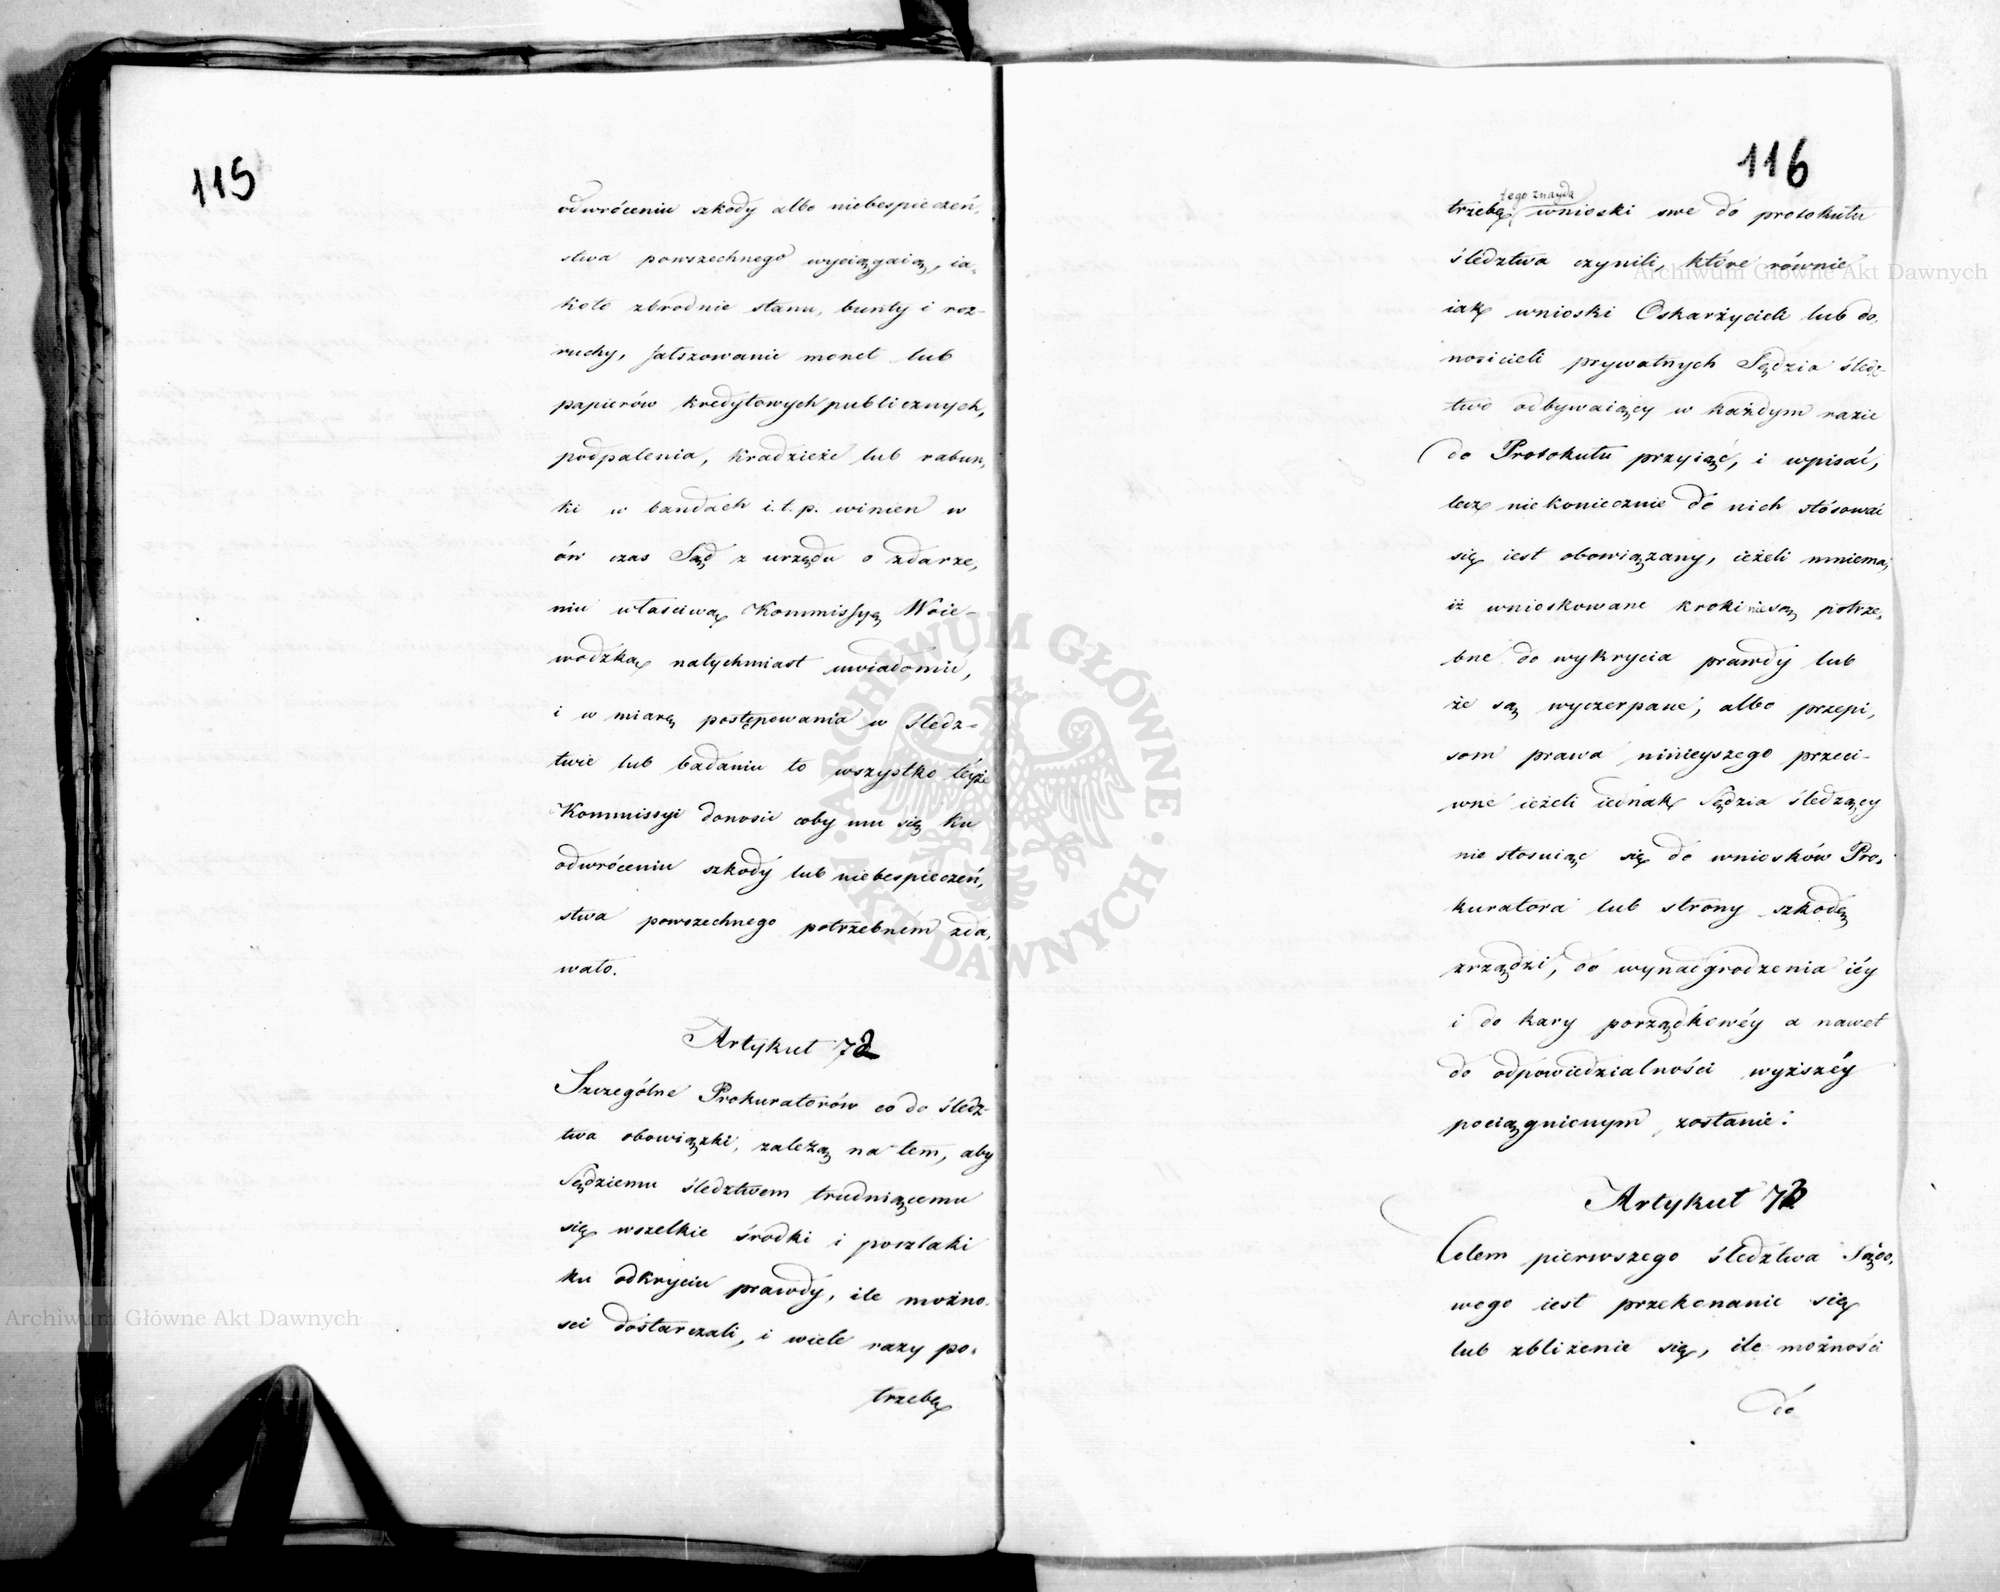 115
odwróceniu szkody albo niebespieczeń,
stwa powszechnego wyciągaią, ia,
koto zbrodnie stanu, bunty i roz-
ruchy, fałszowanie monet lub
papierów kredytowych publicznych,
podpalenia, kradzieże lub rabun,
ki w bandach i. t. p. winien w
ów czas Sąd z urzędu o zdarze,
niu właściwą Kommissyą Woie-
wodzką natychmiast uwiadomić,
i w miarę postępowania w śledz-
twie lub badaniu to wszystko teyże
Kommissyi donosić coby mu się ku
odwróceniu szkody lub niebespieczeń,
stwa powszechnego potrzebném zda,
wało.
Artykuł
Szczególne Prokuratorów co do śledz-
twa obowiązki, zależą na tem, aby
Sędziemu śledztwem trudniącemu
się wszelkie środki i poszlaki
ku odkryciu prawdy, ile możno,
ści dostarczali, i wiele razy po,
trzebę
116
tego znayda
trzebę wnioski swe do protokułu
śledztwa czynili, które równie
iak wnioski Oskarżycieli lub do,
nosicieli prywatnych Sędzia śledz-
two odbywaiący w każdym razie
do Protokułu przyiąć, i wpisać,
lecz niekoniecznie do nich stósować
się iest obowiązany, ieżeli mniema,
iż wnioskowane kroki nie są potrze,
bne do wykrycia prawdy lub
że są wyczerpane, albo przepi,
som prawa ninieyszego przeci-
wne ieżeli iednak Sędzia śledzący
nie stosuiąc się do wniosków Pro,
kuratora lub strony szkodę
zrządzi, do wynadgrodzenia iéy
i do kary porządkowéy a nawet
do odpowiedzialności wyższéy
pociągnionym zostanie.
Artykuł
Celem pierwszego śledztwa Sądo,
wego iest przekonanie się
lub zbliżenie się, ile możności
do
Archiwum Główne Akt Dawnych
Archiwum Główne Akt Dawnych
ARCHIWUM GŁÓWNE AKT DAWNYCH